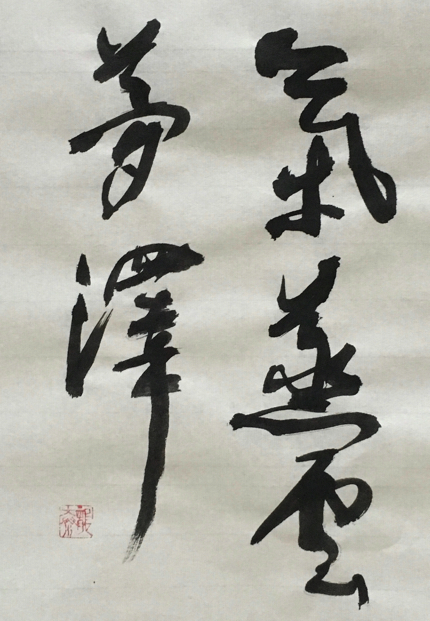 氣蒸雲
夢澤